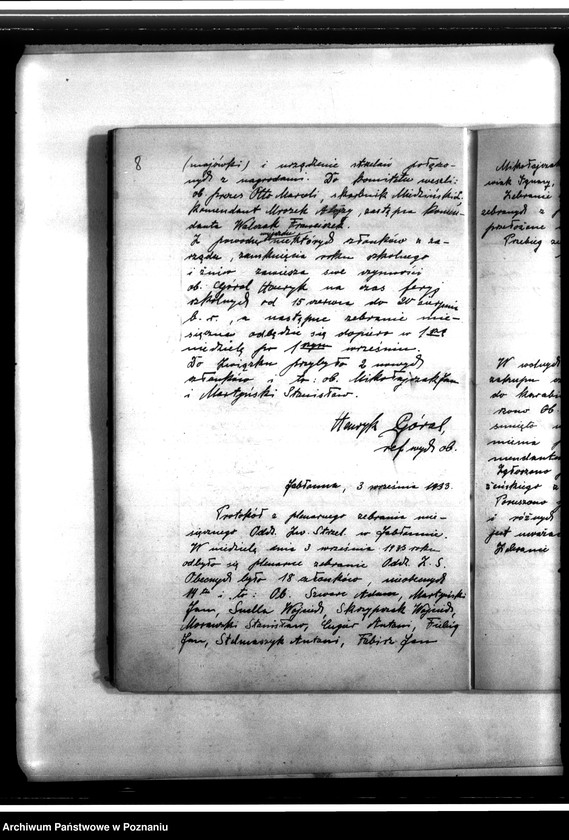 8
(majówki) i urządzenie strzelań połączo-
nych z nagrodami. Do komitetu weszli:
ob. prezes Otto Marceli, skarbnik Miedziński L.
Komendant Mrozek Alojzy, zastępca komen-
danta Walczak Franciszek.
Z powodu wyjazdu niektórych członków z za-
rządu, zamknięcia roku szkolnego
i żniw zawiesza swe czynności
ob. Góral Henryk na czas feryj
szkolnych od 15 czerwca do 20 sierpnia
b. r., a następne zebranie mie-
sięczne odbędzie się dopiero w 1szą
niedzielę po 1szym wrześniu.
Do Związku przybyło 2 nowych
członków i to: ob. Mikołajczak Jan
i Martyński Stanisław.
Henryk Góral,
ref. wych. ob.
Jabłonna, 3 września 1933.
Protokół z plenarnego zebrania mie-
sięcznego Oddz. Zw. Strzel. w Jabłonnie.
W niedzielę, dnia 3 września 1933 roku
odbyło się plenarne zebranie Oddz. Z. S.
Obecnych było 18 członków, nieobecnych
i to: Ob. Szwarc Adam, Martyński
Jan, Snella Wojciech, Skrzypczak Wojciech,
Morawski Stanisław, Antoni,
Jan, Stelmaszyk Antoni, Fabisz Jan
Mikołajczak
wiak Ignacy,
Zebranie
zebranych z
przełożone
Przebieg ze
W wolnych
zakupu
do karabi
szono Ob.
mienia
mendanta
Zgłoszono
zińskiego
Poruszono
i różnych
jest uważa
Zebranie
Archiwum Państwowe w Poznaniu